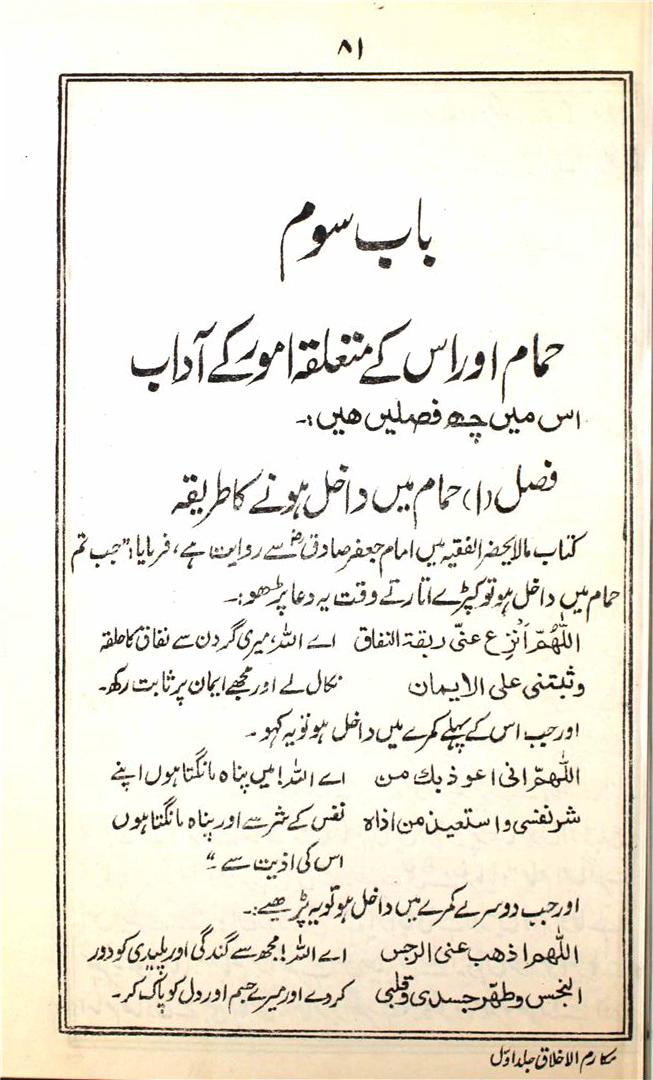 ۸۱
باب سوم
حمام اور اس کے متعلقہ امور کے آداب
اس میں چھ فصلیں ھیں :۔
فصل (۱) حمام میں داخل ہونے کا طریقہ
کتاب مالایحضر الفقیہ میں امام جعفر صادقؑ سے روایت ہے، فرمایا: "جب تم
حمام میں داخل ہو تو کپڑے اتارتے وقت یہ دعا پڑھو:۔
اَللّٰهُمَّ اَنْزِع عنّی ربقة النفاق اے اللہ، میری گردن سے نفاق کا حلقہ
وثبتنی علی الایمان نکال لے اور مجھے ایمان پر ثابت رکھ۔
اور جب اس کے پہلے کمرے میں داخل ہو تو یہ کہو ۔
اللّٰهمّ انی اعوذ بك من اے اللہ! میں پناہ مانگتا ہوں اپنے
شر نفسی واستعیذ من اذاہ نفس کے شر سے اور پناہ مانگتا ہوں
اس کی اذیت سے ۔"
اور جب دوسرے کمرے میں داخل ہو تو یہ پڑھیے:۔
اللّٰهم اذهب عنی الرجس اے اللہ! مجھ سے گندگی اور پلیدی کو دور
النجس وطهّر جسدی وقلبی کر دے اور میرے جسم اور دل کو پاک کر۔
مکارم الاخلاق جلد اوّل